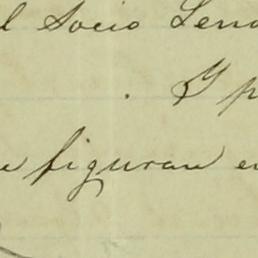 l Socio Len
. Y p
e figuran en